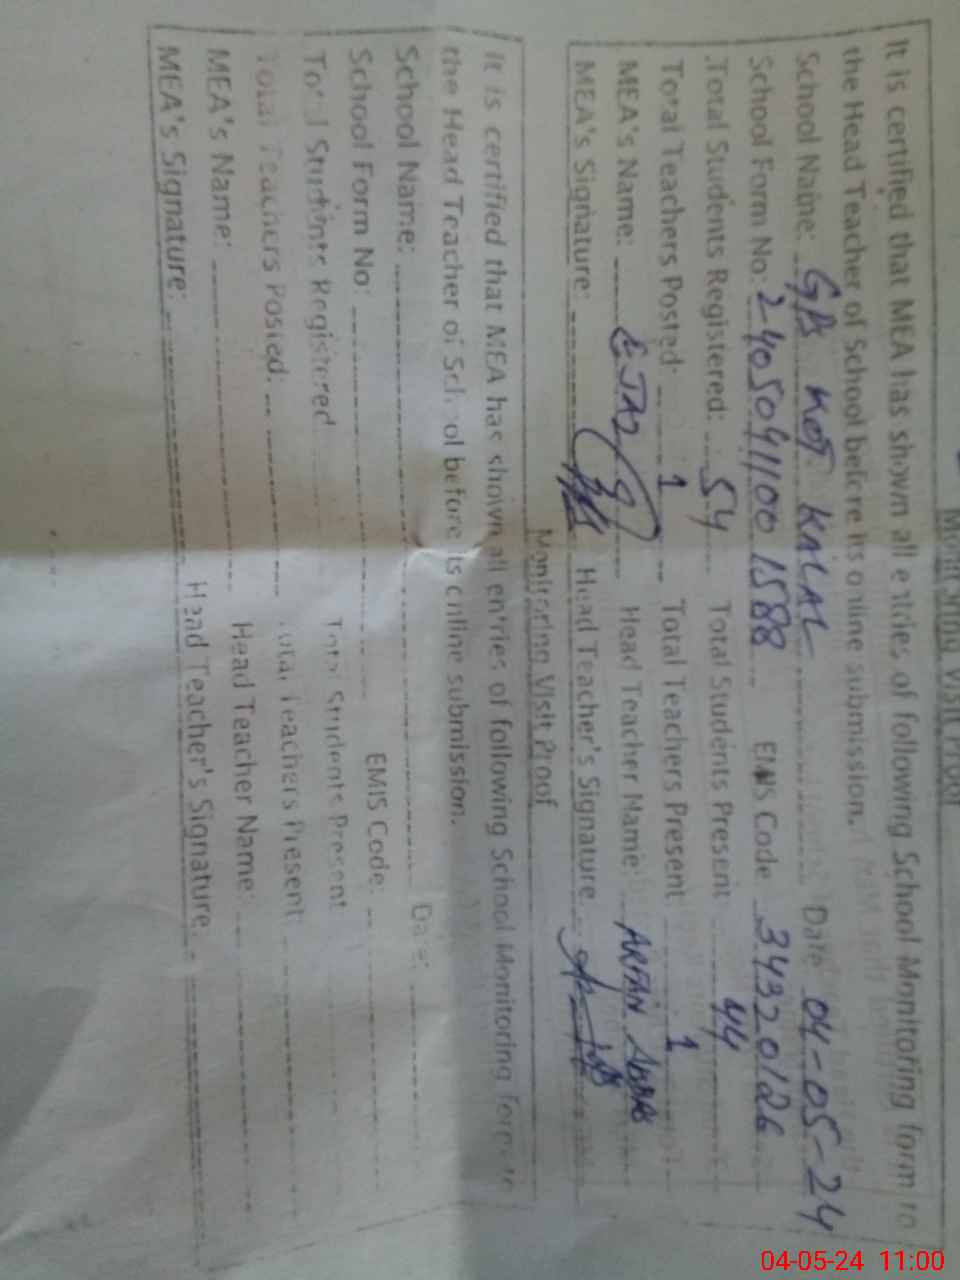 Monitoring Visit Proof
It is certified that MEA has shown all entries of following School Monitoring form to
the Head Teacher of School before its online submission.
School Name: GPS KOT KALAL Date 04-05-24
School Form No: 2405091100 1588 EMIS Code 34320126
Total Students Registered: 54 Total Students Present 44
Total Teachers Posted: 1 Total Teachers Present 1
MEA's Name: EJAZ Head Teacher Name: ARFAN ABBAS
MEA's Signature: Head Teacher's Signature
Monitoring Visit Proof
It is certified that MEA has shown all entries of following School Monitoring form to
the Head Teacher of School before its online submission.
School Name: Date:
School Form No: EMIS Code:
Total Students Registered Total Students Present
Total Teachers Posted: Total Teachers Present
MEA's Name: Head Teacher Name:
MEA's Signature: Head Teacher's Signature
04-05-24 11:00